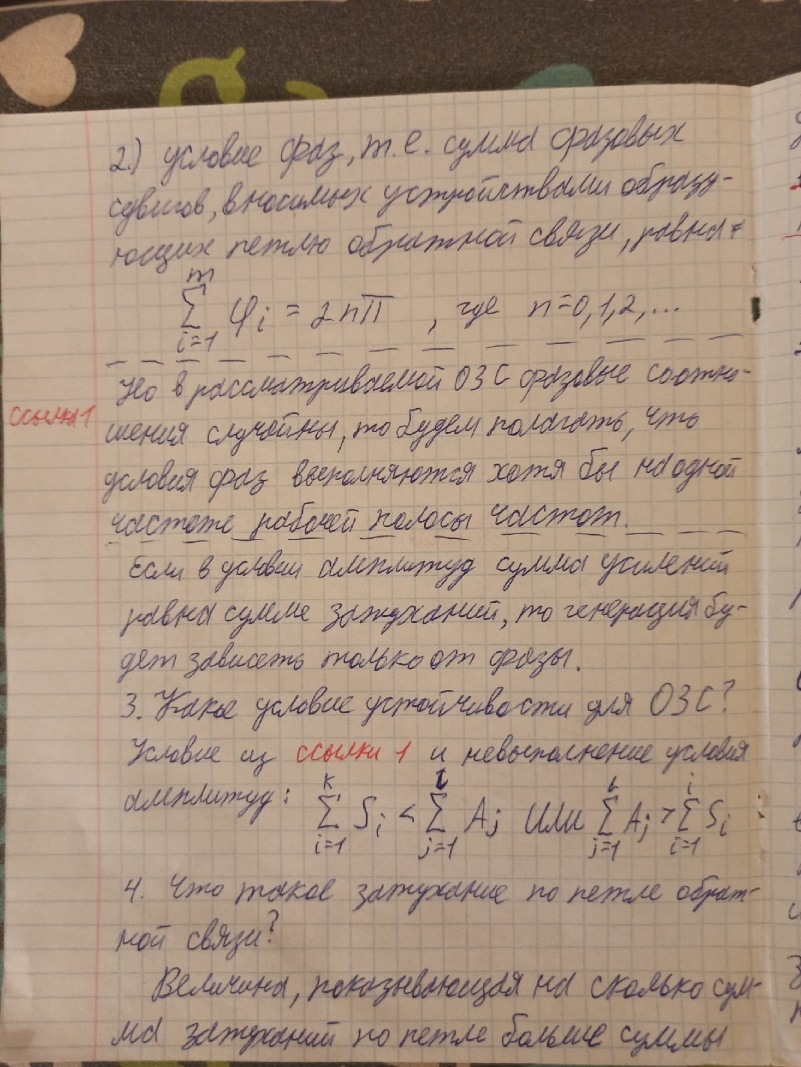 2.) условие фаз, т.е. сумма фазовых
сдвигов, вносимых устройствами образу-
ющих петлю обратной связи, равна
m
∑ φi = 2nπ , где n=0,1,2,...
i=1
Но в рассматриваемой ОЗС фазовые соотно-
ссылка 1
шения случайны, то будем полагать, что
условия фаз выполняются хотя бы на одной
частоте рабочей полосы частот.
Если в условии амплитуд сумма усилений
равна сумме затуханий, то генерация бу-
дет зависеть только от фазы.
3. Какое условие устойчивости для ОЗС?
Условие из ссылки 1 и невыполнение условия
амплитуд: k t t i
∑ Si < ∑ Aj или ∑ Aj > ∑ Si
i=1 j=1 j=1 i=1
4. Что такое затухание по петле обрат-
ной связи?
Величина, показывающая на сколько сум-
ма затуханий по петле больше суммы